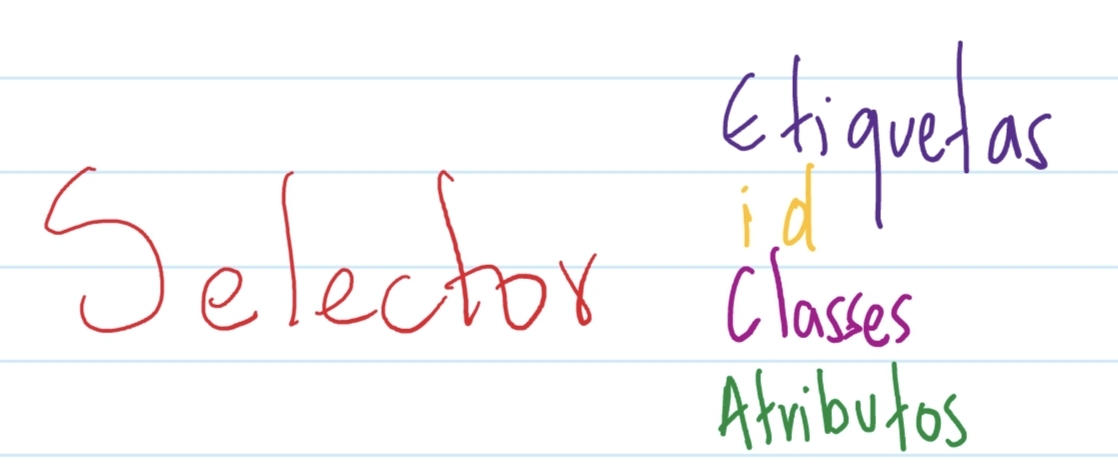 Selector
Etiquetas
id
Classes
Atributos